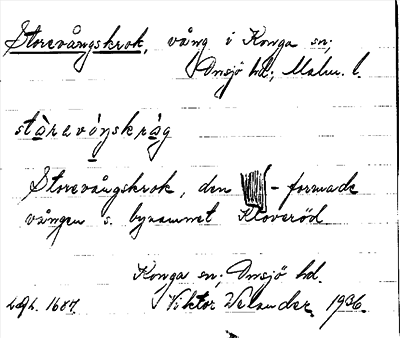 Storevångskrok, vång i Konga sn;
Onsjö hd; Malm. l.
stɑ̀revɑ́ŋskrɑ̀g
Storevångskrok, den - formade
vången s. bynamnet Kloveröd
Konga sn; Onsjö hd.
1687. Viktor Welander. 1936.